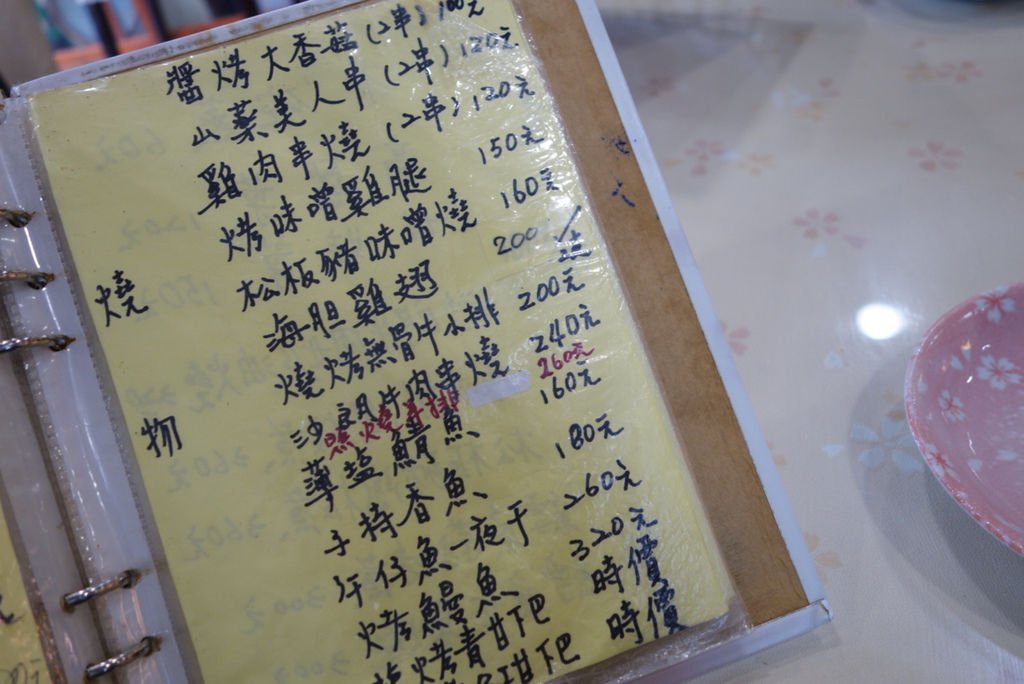 燒物
醬烤大香菇(2串) 100元
山藥美人串(2串) 120元
雞肉串燒(2串) 120元
烤味噌雞腿 150元
松板豬味噌燒 160元
海胆雞翅 200/隻
燒烤無骨牛小排 200元
沙朗牛肉串燒 240元
照燒牛排 260元
薄塩鯖魚 160元
子持香魚 180元
午仔魚一夜干 260元
烤鰻魚 320元
烤青甘下巴 時價
甘下巴 時價